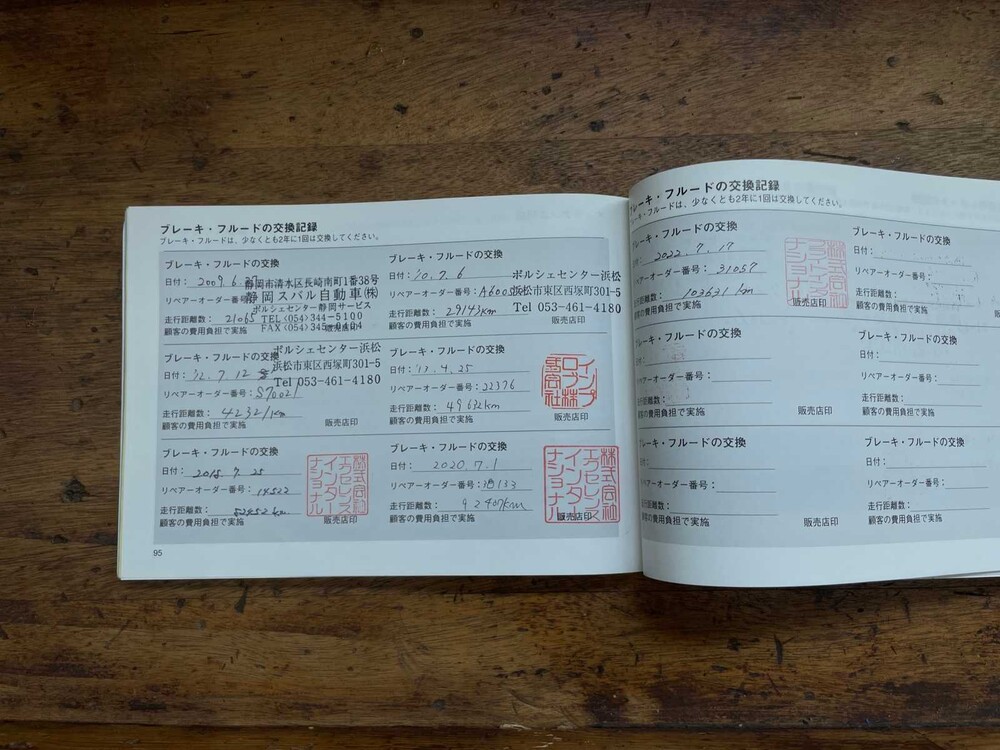 ブレーキ・フルードの交換記録
ブレーキ・フルードは、少なくとも2年に1回は交換してください。
ブレーキ・フルードの交換
日付： 2009.6.
リペアーオーダー番号
走行距離数： 21065
顧客の費用負担で実施
静岡市清水区長崎南町1番38号
静岡スバル自動車(株)
ポルシェセンター静岡サービス
TEL〈054〉344-5100
FAX〈054〉345-
ブレーキ・フルードの交換
日付： '10.7.6
リペアーオーダー番号： A600
走行距離数： 29143km
顧客の費用負担で実施
ポルシェセンター浜松
浜松市東区西塚町301-5
Tel 053-461-4180
販売店印
ブレーキ・フルードの交換
日付： '12.7.12
リペアーオーダー番号： S70021
走行距離数： 42321km
顧客の費用負担で実施
ポルシェセンター浜松
浜松市東区西塚町301-5
Tel 053-461-4180
販売店印
ブレーキ・フルードの交換
日付： '13.4.25
リペアーオーダー番号： 22376
走行距離数： 49632km
顧客の費用負担で実施
インプロブ株式会社
販売店印
ブレーキ・フルードの交換
日付： 2015.7.25
リペアーオーダー番号： 14522
走行距離数： 52452km
顧客の費用負担で実施
株式会社エクセレンスインターナショナル
販売店印
ブレーキ・フルードの交換
日付： 2020.7.1
リペアーオーダー番号： 133
走行距離数： 92407km
顧客の費用負担で実施
株式会社エクセレンスインターナショナル
販売店印
95
レーキ・フルードの交換記録
レーキ・フルードは、少なくとも2年に1回は交換してください。
ブレーキ・フルードの交換
日付： 2022.7.17
リペアーオーダー番号： 31057
走行距離数： 103631km
顧客の費用負担で実施
株式会社
ナショナル
販売店印
ブレーキ・フルードの交換
日付：
リペアーオーダー番号：
走行距離数：
顧客の費用負担で実施
ブレーキ・フルードの交換
日付：
リペアーオーダー番号：
走行距離数：
顧客の費用負担で実施
販売店印
ブレーキ・フルードの交換
日付：
リペアーオーダー番号：
走行距離数：
顧客の費用負担で実施
ブレーキ・フルードの交換
日付：
リペアーオーダー番号：
走行距離数：
顧客の費用負担で実施
販売店印
ブレーキ・フルードの交換
日付：
リペアーオーダー番号：
走行距離数：
顧客の費用負担で実施